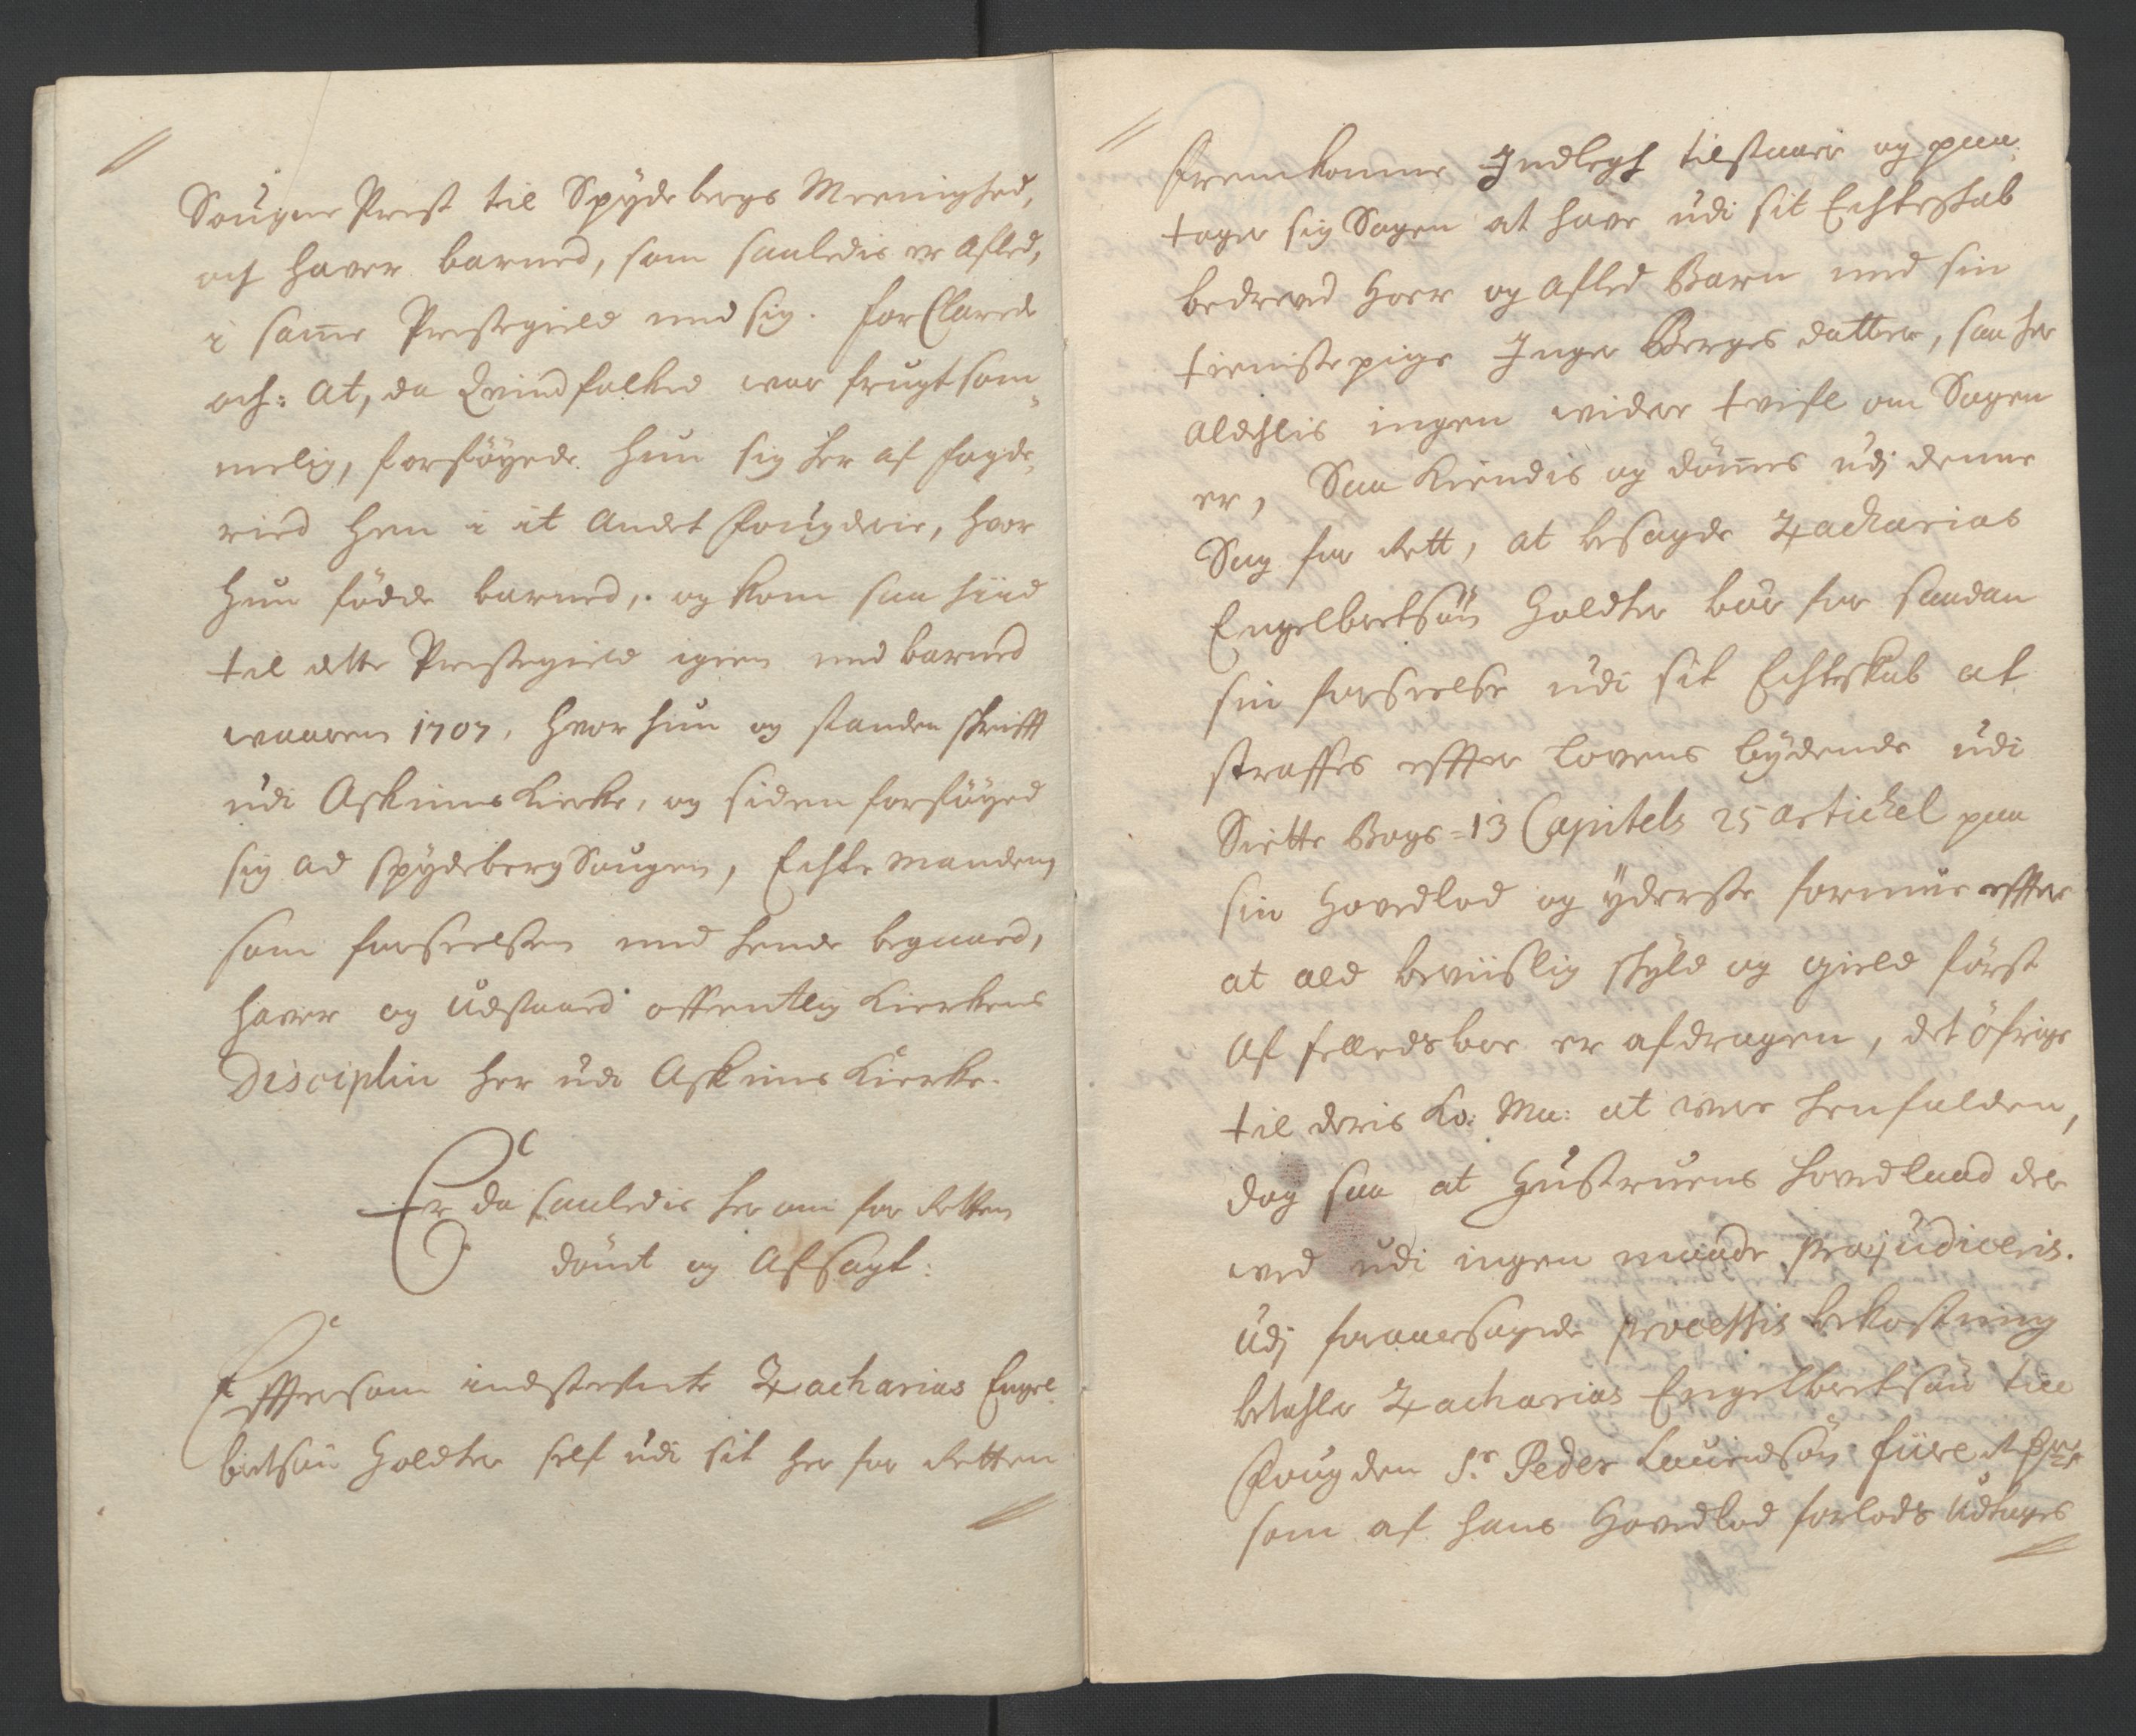 Sougne Prest til Spydebergs Meenighed,
och haver barned, som saaledis er Afled,
i samme Prestegield med sig. forClarede
och: At, da Qvindfolked war frugtsom-
melig, forføyede hun sig her af fogde-
ried hen i it Andet fougderie, hvor
hun fødde barned, og kom saa hiid
til dette Prestegield igien med barned
waaren 1707, hvor hun og standen skrifft
udi Askims Kierke, og siden forføyed
sig ad Spydeberg Sougen, Echte Manden
som forseelsen med hende begaaed,
haver og udstaaed offentlig Kierkens
Disciplin her udi Askims Kierke.
Er da saaledis her om for Retten
dømt og Afsagt:
Effter som indstefnte Zacharias Engel-
bretsøn Holdter self udi sit her for Retten
fremkomne Indlegh tilstaaer og paa-
tager sig Sagen at have udi sit Echteskab
bedreved Hoer og Afled Barn med sin
tienistepige Inger Berges datter, saa her
aldehlis ingen wider tvifl om Sagen
er, Saa Kiendis og dømmes udj denne
Sag for Rett, at besagde Zacharias
Engelbretsøn Holdter bør for saadan
sin forseelse udi sit Echteskab at
straffes effter Lovens bydende udi
Siette Bogs 13 Capitels 25 Artichel paa
sin Hovedlod og yderste formue effter
at ald beviislig skyld og gield først
Af fellidsboe er afdragen, det øfrige
til deris Ko: Ma: at were henfalden,
dog saa at Hustruens hovedlaad der
wed udi ingen maade præjudiceris.
Udj foraarsagede processis bekostning
betahler Zacharias Engelbretsøn till
fougden Sr. Peder Lauridsøn fiire Rdr
som af hans Hovedlod forlods udtages